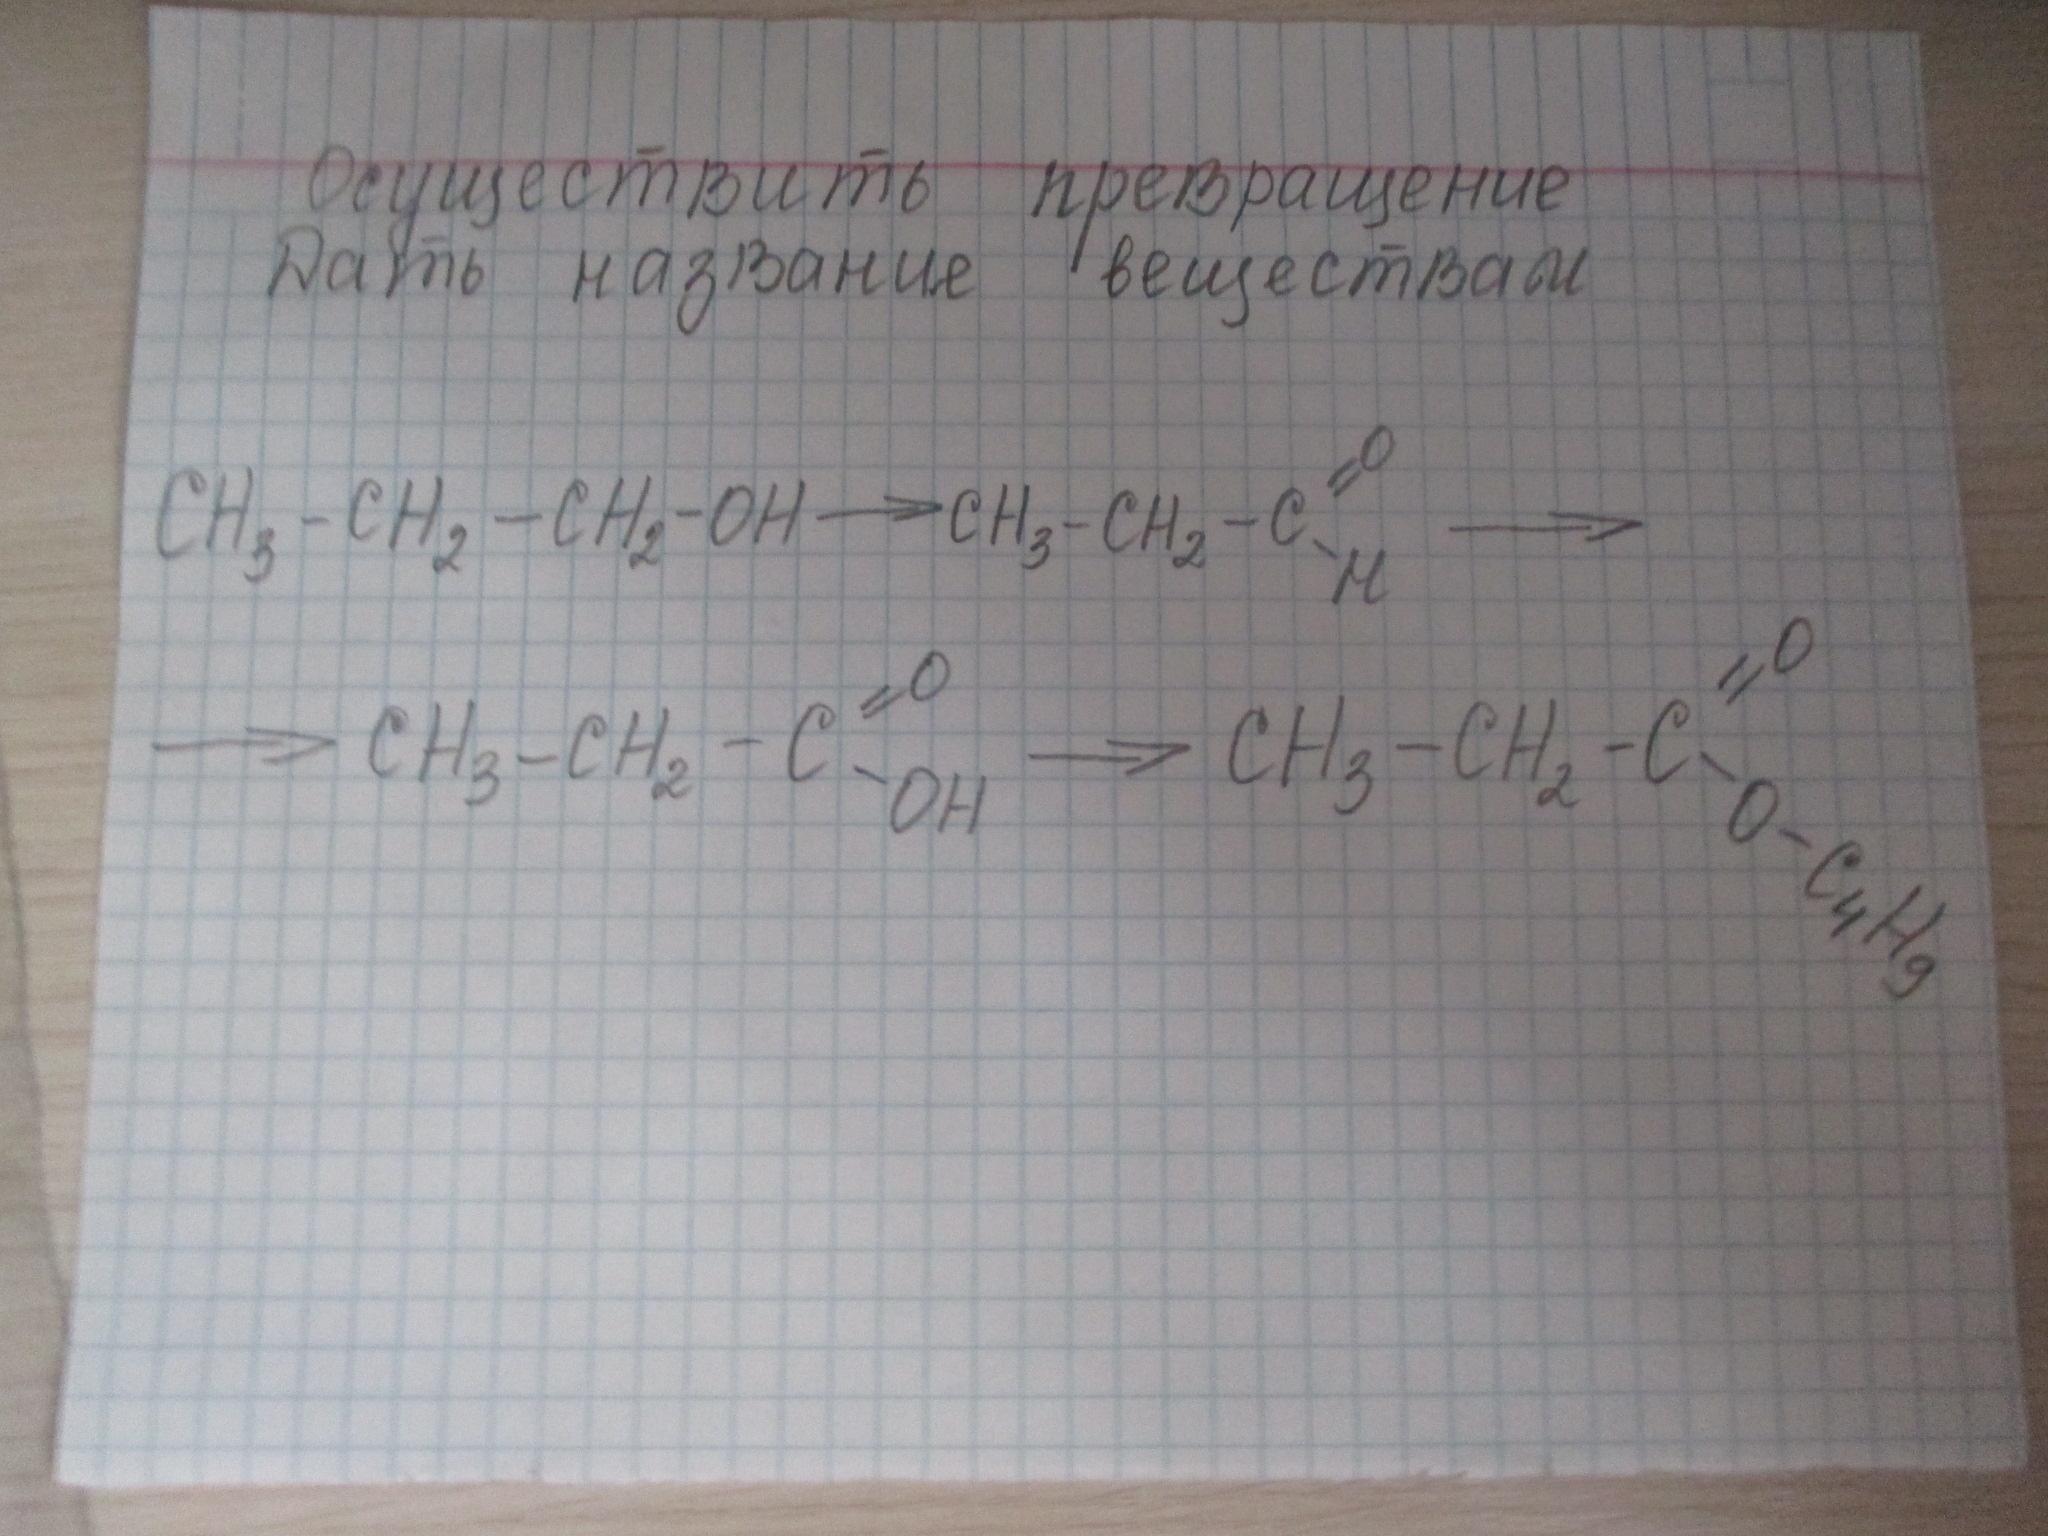 Осуществить превращение
Дать название веществам
CH₃-CH₂-CH₂-OH→CH₃-CH₂-C(=O)-H →
→ CH₃-CH₂-C(=O)-OH → CH₃-CH₂-C(=O)-O-C₄H₉